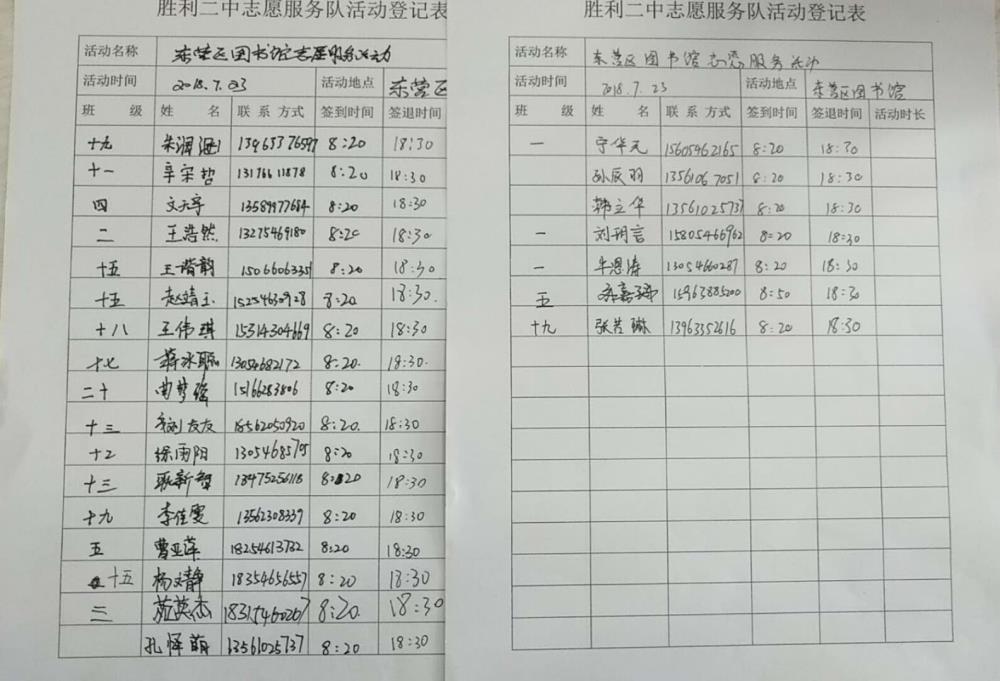 胜利二中志愿服务队活动登记表
活动名称 东营区图书馆志愿服务活动
活动时间 2018.7.23 活动地点 东营区
班 级 姓 名 联系方式 签到时间 签退时间
十九 朱润涵 13465376597 8:20 18:30
十一 辛宋哲 13176611878 8:20 18:30
四 文天宇 13589977684 8:20 18:30
二 王浩然 13275469180 8:20 18:30
十五 王谐韵 15066063359 8:20 18:30
十五 赵靖玉 15254630928 8:20 18:30.
十八 王伟琪 15314304669 8:20 18:30
十七 蒋冰 13054682172 8:20. 18:30.
二十 曲梦瑶 15166283806 8:20 18:30
十三 友友 18562050920 8:20. 18:30
十二 徐雨阳 13054685705 8:20 18:30
十三 耿新智 13475256118 8:20 18:30
十九 李佳雯 13562308339 8:20 18:30
五 曹亚萍 18254613732 8:20 18:30
十五 杨文静 18354656557 8:20 18:30
三 范英杰 18315460267 8:20 18:30
孔怿萌 13561025737 8:20 18:30
胜利二中志愿服务队活动登记表
活动名称 东营区图书馆志愿服务活动
活动时间 2018.7.23 活动地点 东营区图书馆
班 级 姓 名 联系方式 签到时间 签退时间 活动时长
一 宁华元 15605462165 8:20 18:30
孙辰羽 13561067051 8:20 18:30
韩立华 13561025737 8:20 18:30
一 刘玥言 15805466962 8:20 18:30
一 牟恩涛 13054660287 8:20 18:30
五 15963885200 8:50 18:30
十九 张芸琳 13963352616 8:20 18:30